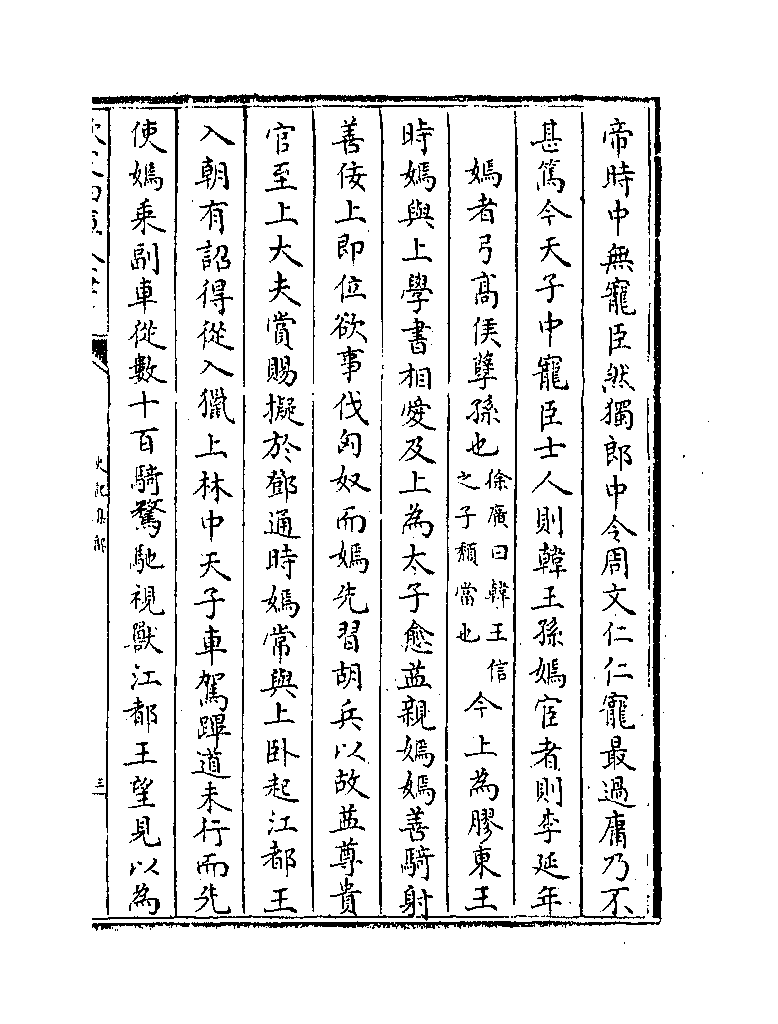 帝時中無寵臣然獨郎中令周文仁仁寵最過庸乃不
甚篤今天子中寵臣士人則韓王孫嫣宦者則李延年
嫣者弓高侯孽孫也
徐廣曰韓王信
之子頽當也
今上為膠東王
時嫣與上學書相愛及上為太子愈益親嫣嫣善騎射
善佞上即位欲事伐匈奴而嫣先習胡兵以故益尊貴
官至上大夫賞賜擬於鄧通時嫣常與上卧起江都王
入朝有詔得從入獵上林中天子車駕蹕道未行而先
使嫣乗副車從數十百騎騖馳視獸江都王望見以為
史記集解
三